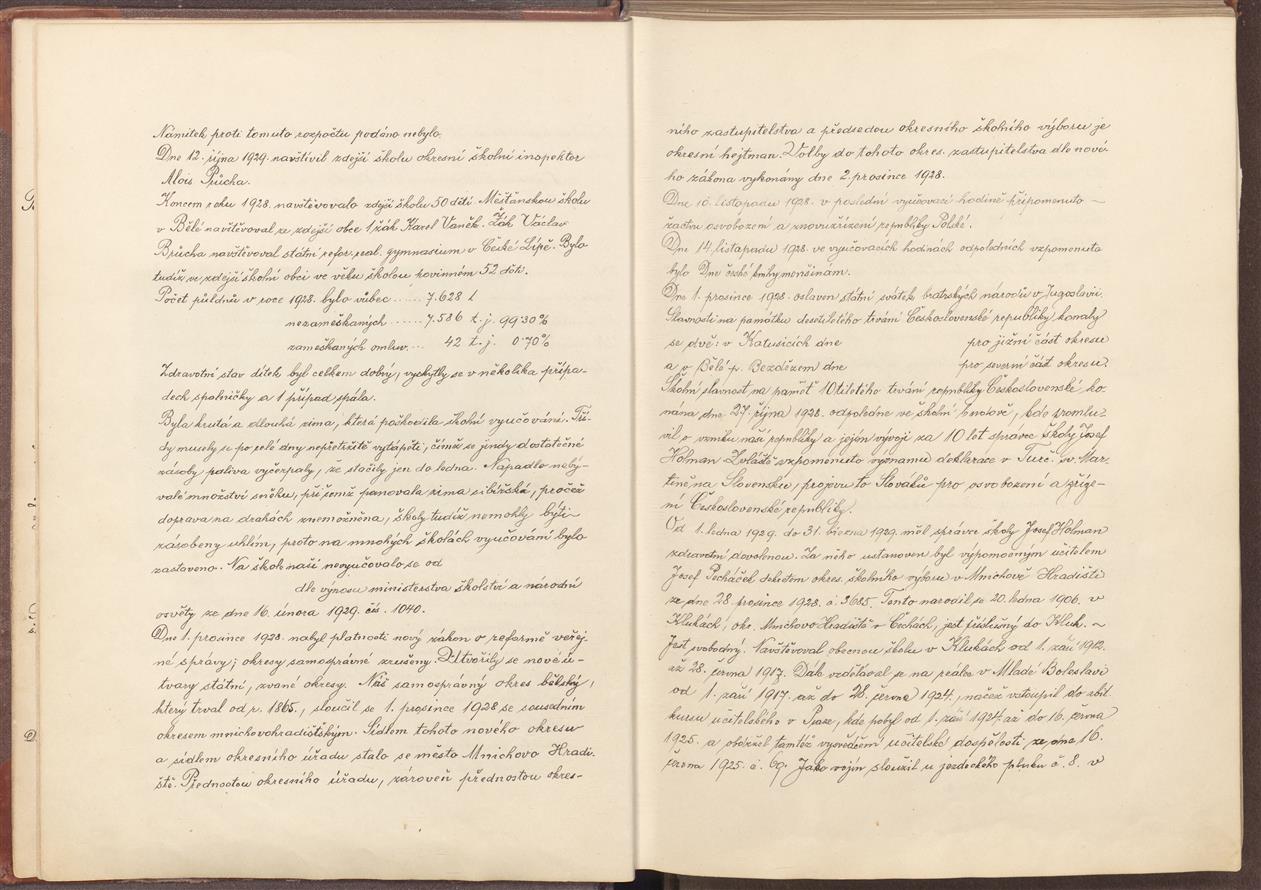 Námitek proti tomuto rozpočtu podáno nebylo.
Dne 12. října 1929. navštívil zdejší školu okresní školní inspektor
Alois Průcha.
Koncem roku 1928. navštěvovalo zdejší školu 50 dětí. Měšťanskou školu
v Bělé navštěvoval ze zdejší obce 1 žák Karel Vaněk. Žák Václav
Brůcha navštěvoval státní refor. real. gymnasium v České Lípě. Bylo
tudíž ve zdejší školní obci ve věku školou povinném 52 dětí.
Počet půldnů v roce 1928. bylo vůbec ...... 7.628 1
nezameškaných ...... 7.586 t. j. 99·30%
zameškaných omluv. ... 42 t. j. 0·70%
Zdravotní stav dítek byl celkem dobrý, vyskytly se v několika přípa-
dech spalničky a 1 případ spála.
Byla krutá a dlouhá zima, která poškodila školní vyučování. Tří-
dy musely se po celé dny nepřetržitě vytápěti, čímž se jindy dostatečné
zásoby paliva vyčerpaly, že stačily jen do ledna. Napadlo neby-
valé množství sněhu, při čemž panovala zima sibiřská, pročež
doprava na drahách znemožněna, školy tudíž nemohly býti
zásobeny uhlím, proto na mnohých školách vyučování bylo
zastaveno. Na škole naší nevyučovalo se od
dle výnosu ministerstva školství a národní
osvěty ze dne 16. února 1929. čís. 1040.
Dne 1. prosince 1928. nabyl platnosti nový zákon o reformě veřej-
né správy; okresy samosprávné zrušeny. Utvořily se nové ú-
tvary státní, zvané okresy. Náš samosprávný okres bělský,
který trval od r. 1865., sloučil se 1. prosince 1928 se sousedním
okresem mnichovohradištským. Sídlem tohoto nového okresu
a sídlem okresního úřadu stalo se město Mnichovo Hradi-
ště. Přednostou okresního úřadu, zároveň přednostou okres-
ního zastupitelstva a předsedou okresního školního výboru je
okresní hejtman. Volby do tohoto okres. zastupitelstva dle nové-
ho zákona vykonány dne 2. prosince 1928.
Dne 10. listopadu 1928. v poslední vyučovací hodině připomenuto –
žactvu osvobození a znovuzřízení republiky Polské.
Dne 14. listopadu 1928. ve vyučovacích hodinách odpoledních vzpomenuto
bylo Dne české knihy menšinám.
Dne 1. prosince 1928. oslaven státní svátek bratrských národů v Jugoslavii.
Slavnosti na památku desetiletého trvání Československé republiky konaly
se dvě: v Katusicích dne pro jižní část okresu
a v Bělé p. Bezdězem dne pro severní část okresu.
Školní slavnost na paměť 10tiletého trvání republiky Československé ko-
nána dne 27. října 1928. odpoledne ve školní budově, kde promlu-
vil o vzniku naší republiky a jejím vývoji za 10 let správce školy Josef
Holman. Zvláště vzpomenuto významu deklarace v Turč. sv. Mar-
tině na Slovensku, projevu to Slováků pro osvobození a zříze-
ní Československé republiky.
Od 1. ledna 1929. do 31. března 1929. měl správce školy Josef Holman
zdravotní dovolenou. Za něho ustanoven byl výpomocným učitelem
Josef Pecháček dekretem okres. školního výboru v Mnichově Hradišti
ze dne 28. prosince 1928. č. 3685. Tento narodil se 20. ledna 1906. v
Klukách, okr. Mnichovo-Hradiště v Čechách, jest příslušný do Kluk. –
Jest svobodný. Navštěvoval obecnou školu v Klukách od 1. září 1912.
až 28. června 1917. Dále vzdělával se na reálce v Mladé Boleslavi
od 1. září 1917. až do 28. června 1924., načež vstoupil do abit.
kursu učitelského v Praze, kde pobyl od 1. září 1924. až do 16. června
1925. a obdržel tamtéž vysvědčení učitelské dospělosti ze dne 16.
června 1925. č. 69. Jako vojín sloužil u jezdeckého pluku č. 8. v